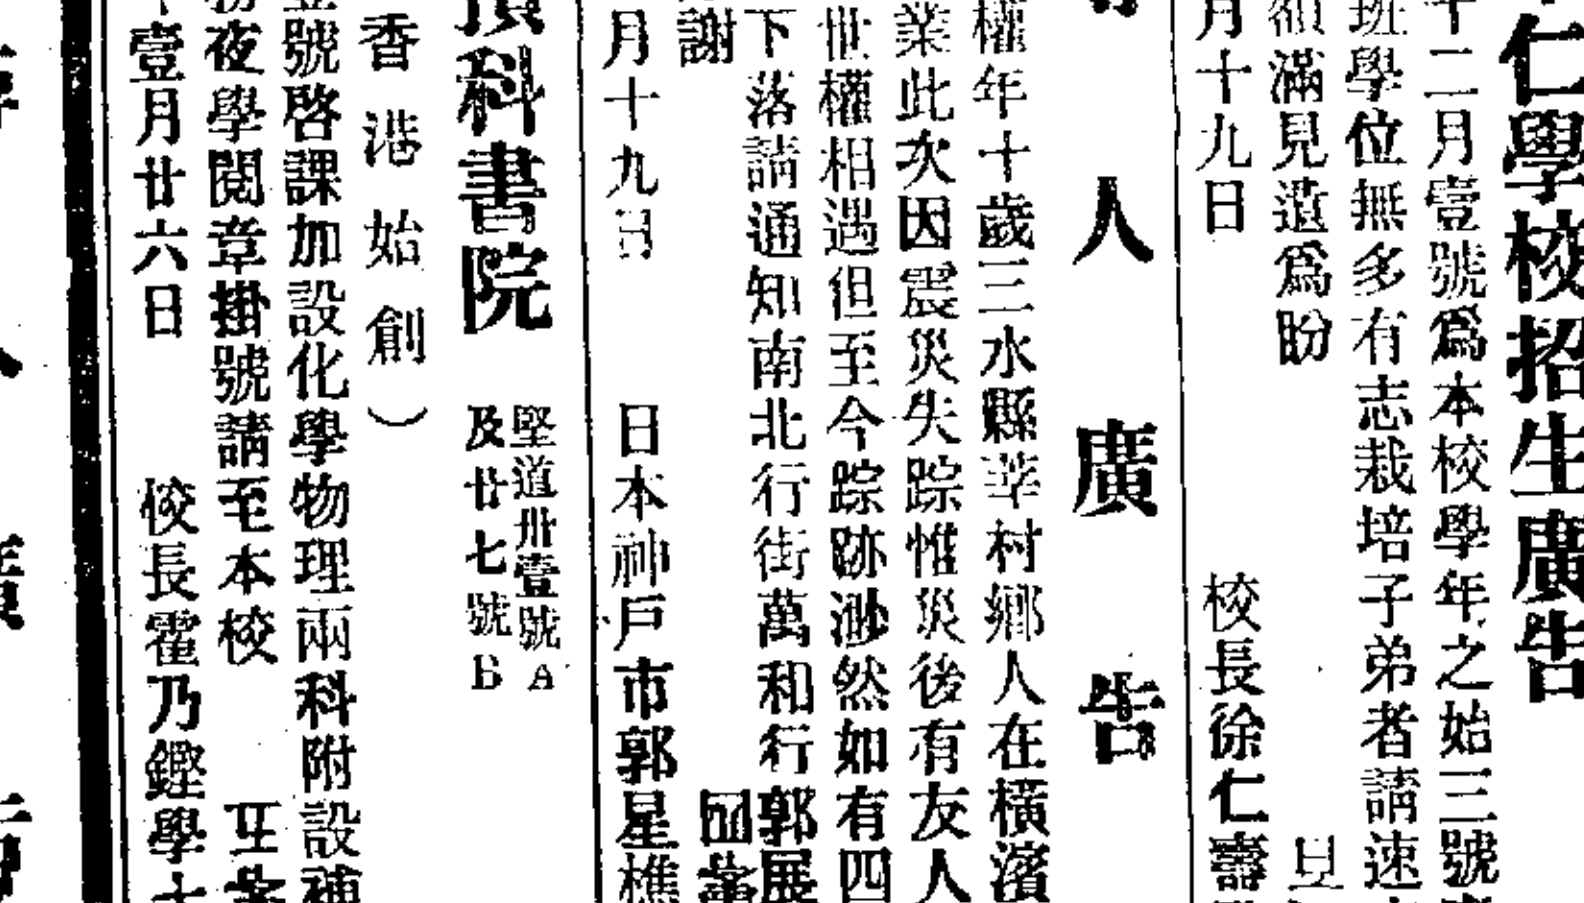 仁學校招生廣告
十二月壹號爲本校學年之始三號
班學位無多有志栽培子弟者請速
額滿見遺爲盼
月十九日 校長徐仁壽
人廣告
權年十歲三水縣莘村鄉人在橫濱
業此次因震災失踪惟災後有友人
世權相遇但至今踪跡渺然如有四
下落請通知南北行街萬和行郭展
謝
月十九日 日本神戶市郭星樵
預科書院
堅道卅壹號A
及廿七號B
香港始創）
壹號啓課加設化學物理兩科附設補
夜學閱章掛號請至本校
壹月廿六日 校長霍乃鏗學士